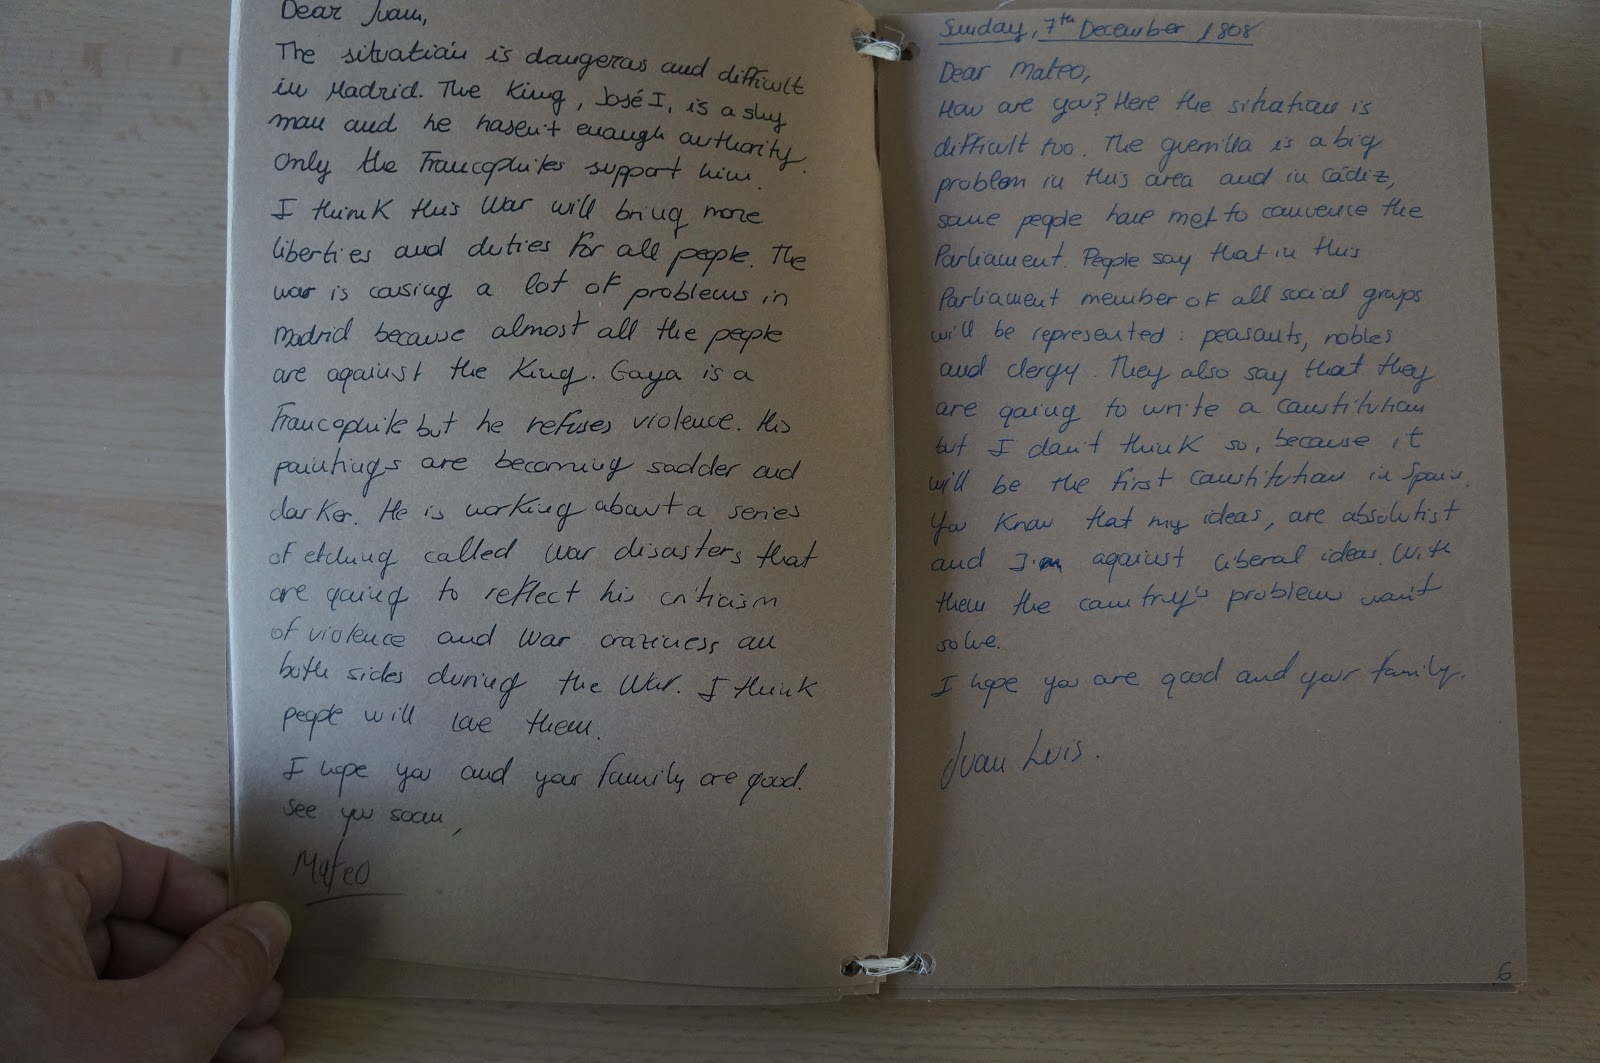 Dear Juan,
The situation is dangeras and difficult
in Madrid. The King, José I, is a shy
man and he hasen't enough authority.
Only the Francophiles support him.
I think this War will bring more
liberties and duties for all people. The
war is causing a lot of problems in
Madrid because almost all the people
are against the King. Goya is a
Francophile but he refuses violence. His
paintings are becoming sadder and
darker. He is working about a series
of etching called War disasters that
are going to reflect his criticism
of violence and War craziness on
both sides during the War. I think
people will love them.
I hope you and your family are good.
See you soon,
Mateo
Sunday, 7th December 1808
Dear Mateo,
How are you? Here the situation is
difficult too. The guerrilla is a big
problem in this area and in Cádiz,
some people have met to convence the
Parliament. People say that in this
Parliament member of all social groups
will be represented: peasants, nobles
and clergy. They also say that they
are going to write a constitution
but I don't think so, because it
will be the first constitution in Spain.
You Know that my ideas, are absolutist
and I'm against liberal ideas. With
them the country's problems won't
solve.
I hope you are good and your family.
Juan Luis.
6